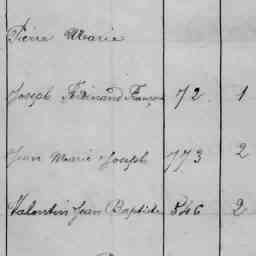 Pierre Marie
Joseph Ferdinand François 72 1
Jean Marie Joseph 773 2
Valentin Jean Baptiste 846 2